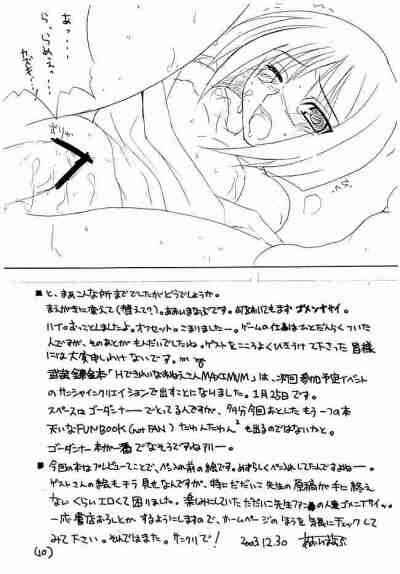 あっ・・・
ら、らめぇ・・・
■と、まぁこんな所まででしたがどうでしょうか。
まえがきに変えて(替えて?)。ああいまなぶです。
ハイ。おっことしましたよ。オフセット。こまりましたー。ゲームの仕事はおとだんらくついた
んですが、そのあとがもんだいでしたね。ゲストをこころよくひきうけて下さった皆様
には大変申しわけないです。m
「HできれいなおねえさんMAXIMUM」は、次回参加予定イベント
のサンシャインクリエイションで出すことになりました。1月25日です。
スペースはゴーダンナーでとってるんですが、多分今回おとしたもう一つの本
天いなFUNBOOK(not FAN)たゆんたゆん²も出るのではないかと。
ゴーダンナー本が一番でなそうですねアリー。
■今回の本はプレビューってことで、ペン入れ前の絵です。めずらしくペン入れしてたんですよねー。
ゲストさんの絵もチラ見せなんですが、特にただいこ先生の原稿が手に終え
ないくらいエロくて困りました。楽しみにしていたただいこ先生ファンの人達ゴメンナサイッ。
一応書店おろしとかするようにしますので、ホームページのほうを気長にチェックして
みて下さい。そんではまた。サンクリで!
2003.12.30
(10)